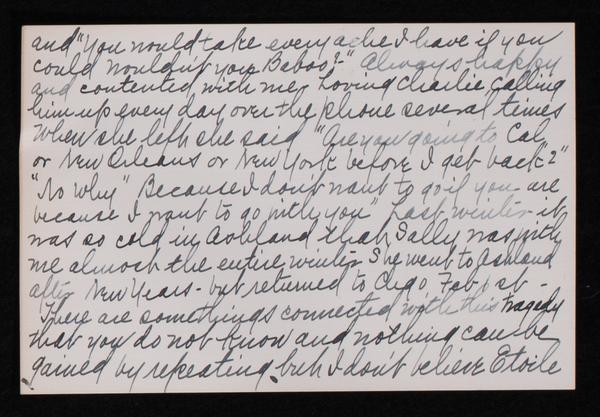 and "You would take every ache I have if you
could wouldn't you Baboo?" Always happy
and contented with me, Loving Charlie, Calling
him up every day over the phone several times
When she left she said "Are you going to Cal
or New Orleans or New York before I get back"?"
"No Why" Because I don't want to go if you are
because I want to go with you" Last winter it
was so cold in Ashland that Sally was with
me almost the entire winter She went to Ashland
after New Years - but returned to Chgo Feb 1st -
There are somethings connected with this tragedy
that you do not know and nothing can be
gained by repeating, but I don't believe Etoile